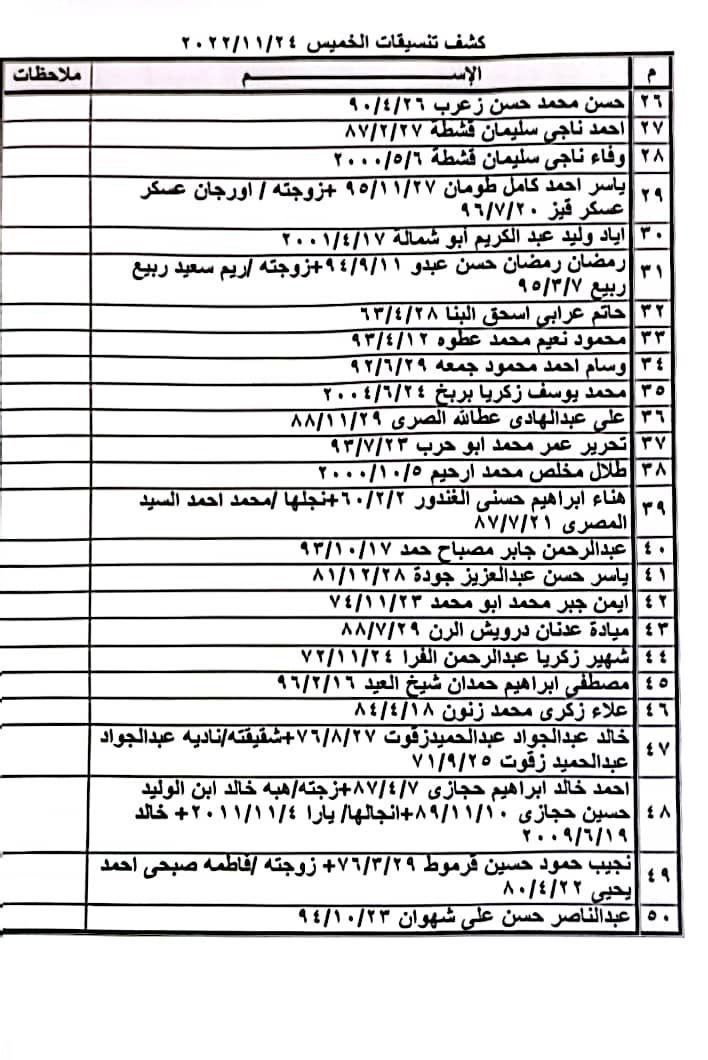 كشف تنسيقات الخميس ٢٠٢٢/١١/٢٤
م الإســـــــم ملاحظات
٢٦ حسن محمد حسن زعرب ٩٠/٤/٢٦
٢٧ احمد ناجى سليمان قشطة ٨٧/٢/٢٧
٢٨ وفاء ناجى سليمان قشطة ٢٠٠٠/٥/٦
٢٩ ياسر احمد كامل طومان ٩٥/١١/٢٧ +زوجته / اورجان عسكر
عسكر قيز ٩٦/٧/٢٠
٣٠ اياد وليد عبد الكريم أبو شمالة ٢٠٠١/٤/١٧
٣١ رمضان رمضان حسن عبدو ٩٤/٩/١١+زوجته /ريم سعيد ربيع
ربيع ٩٥/٣/٧
٣٢ حاتم عرابى اسحق البنا ٦٣/٤/٢٨
٣٣ محمود نعيم محمد عطوه ٩٣/٤/١٢
٣٤ وسام احمد محمود جمعه ٩٢/٦/٢٩
٣٥ محمد يوسف زكريا بربخ ٢٠٠٤/٦/٢٤
٣٦ على عبدالهادى عطالله الصرى ٨٨/١١/٢٩
٣٧ تحرير عمر محمد ابو حرب ٩٣/٧/٢٣
٣٨ طلال مخلص محمد ارحيم ٢٠٠٠/١٠/٥
٣٩ هناء ابراهيم حسنى الغندور ٦٠/٢/٢+نجلها /محمد احمد السيد
المصرى ٨٧/٧/٢١
٤٠ عبدالرحمن جابر مصباح حمد ٩٣/١٠/١٧
٤١ ياسر حسن عبدالعزيز جودة ٨١/١٢/٢٨
٤٢ ايمن جبر محمد ابو محمد ٧٤/١١/٢٣
٤٣ ميادة عدنان درويش الرن ٨٨/٧/٢٩
٤٤ شهير زكريا عبدالرحمن الفرا ٧٢/١١/٢٤
٤٥ مصطفى ابراهيم حمدان شيخ العيد ٩٦/٢/١٦
٤٦ علاء زكرى محمد زنون ٨٤/٤/١٨
٤٧ خالد عبدالجواد عبدالحميدزقوت ٧٦/٨/٢٧+شقيقته/ناديه عبدالجواد
عبدالحميد زقوت ٧١/٩/٢٥
٤٨ احمد خالد ابراهيم حجازى ٨٧/٤/٧+زجته/هبه خالد ابن الوليد
حسين حجازى ٨٩/١١/١٠+انجالها/ يارا ٢٠١١/١١/٤+ خالد
٢٠٠٩/٦/١٩
٤٩ نجيب حمود حسين قرموط ٧٦/٣/٢٩+ زوجته /فاطمه صبحى احمد
يحيى ٨٠/٤/٢٢
٥٠ عبدالناصر حسن على شهوان ٩٤/١٠/٢٣